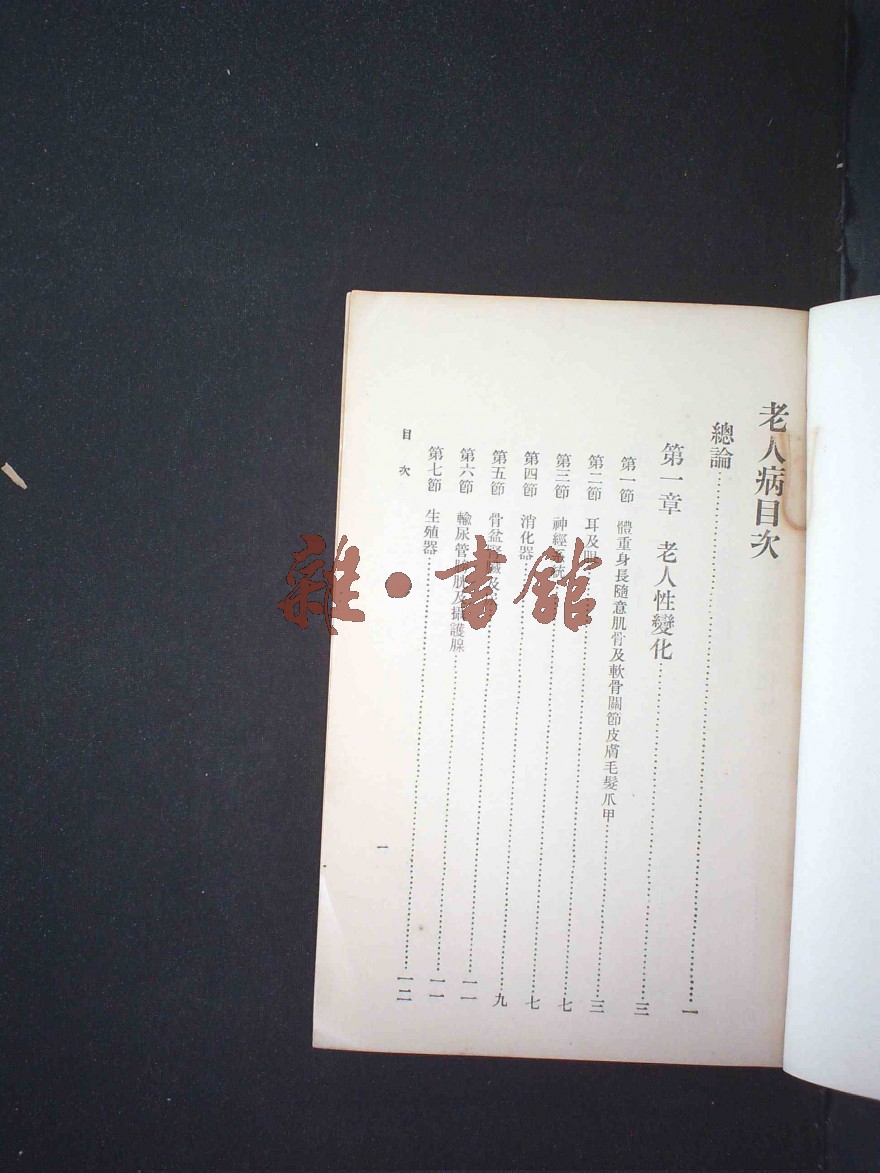 老人病目次
總論……一
第一章 老人性變化……三
第一節 體重身長隨意肌骨及軟骨關節皮膚毛髮爪甲……三
第二節 耳及……七
第三節 神經……七
第四節 消化器……九
第五節 骨盆腎臟及……一一
第六節 輸尿管膀胱及攝護腺……一一
第七節 生殖器……一二
目次
一
雜·書館